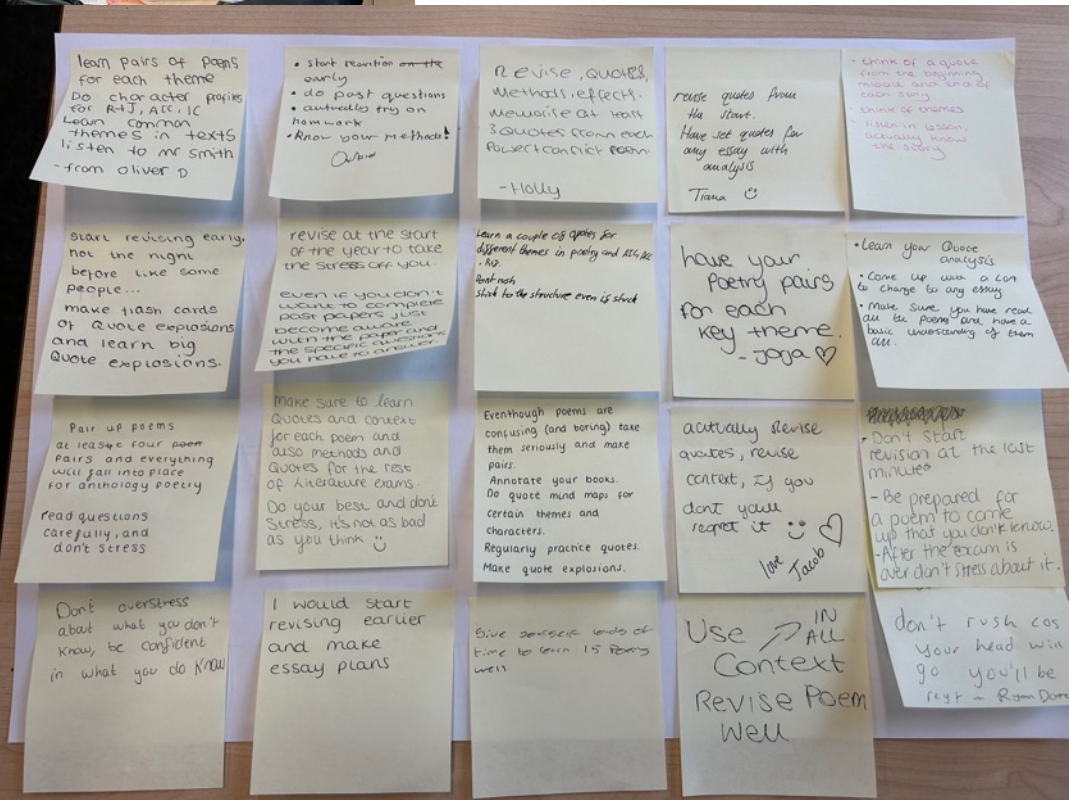 learn pairs of poems
for each theme
Do character profiles
for R+J, ACC, IC
Learn common
themes in texts
listen to mr smith
- from oliver D
• start revision on the
early
• do past questions
• actually try on
homework
• Know your methods!
Revise, quotes,
methods, effects.
memorise at least
3 quotes from each
Power+conflict poem.
- Holly
revise quotes from
the start.
Have set quotes for
any essay with
analysis
Tiana ☺
• think of a quote
from the beginning
middle and end of
each story
• think of themes
• listen in lesson,
actually know
the story
start revising early,
not the night
before like some
people...
make flash cards
of quote explosions
and learn big
quote explosions.
revise at the start
of the year to take
the stress off you.
even if you don't
want to complete
past papers just
become aware
with the paper and
the specific questions
you have to answer.
Learn a couple of quotes for
different themes in poetry and
Dont rush
stick to the structure even is stuck
have your
Poetry pairs
for each
key theme.
- Jaja ♡
• Learn your Quote
analysis
• Come up with a
to change to any essay
• Make sure you have read
all the poems and have a
basic understanding of them
all.
Pair up poems
at least four poem
pairs and everything
will fall into place
for anthology poetry
read questions
carefully, and
don't stress
Make sure to learn
Quotes and context
for each poem and
also methods and
Quotes for the rest
of Literature exams.
Do your best and don't
Stress, it's not as bad
as you think ☺
Eventhough poems are
confusing (and boring) take
them seriously and make
pairs.
Annotate your books.
Do quote mind maps for
certain themes and
characters.
Regularly practice quotes.
Make quote explosions.
actually revise
quotes, revise
context, if you
dont youll
regret it ☺ ♡
love Jacob
• Don't start
revision at the last
minute
- Be prepared for
a poem to come
up that you don't know.
- After the exam is
over don't stress about it.
Dont overstress
about what you don't
know, be confident
in what you do know
I would start
revising earlier
and make
essay plans
Give yourself loads of
time to learn 15 Poetry
well
Use IN
ALL
Context
Revise Poem
Well
don't rush cos
your head will
go you'll be
Ryan